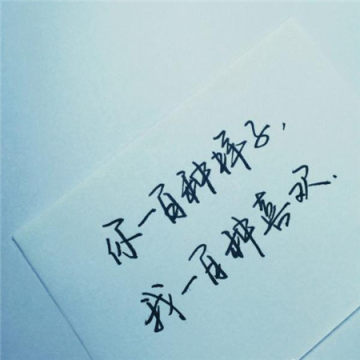 你一百种样子,
我一百种喜欢.